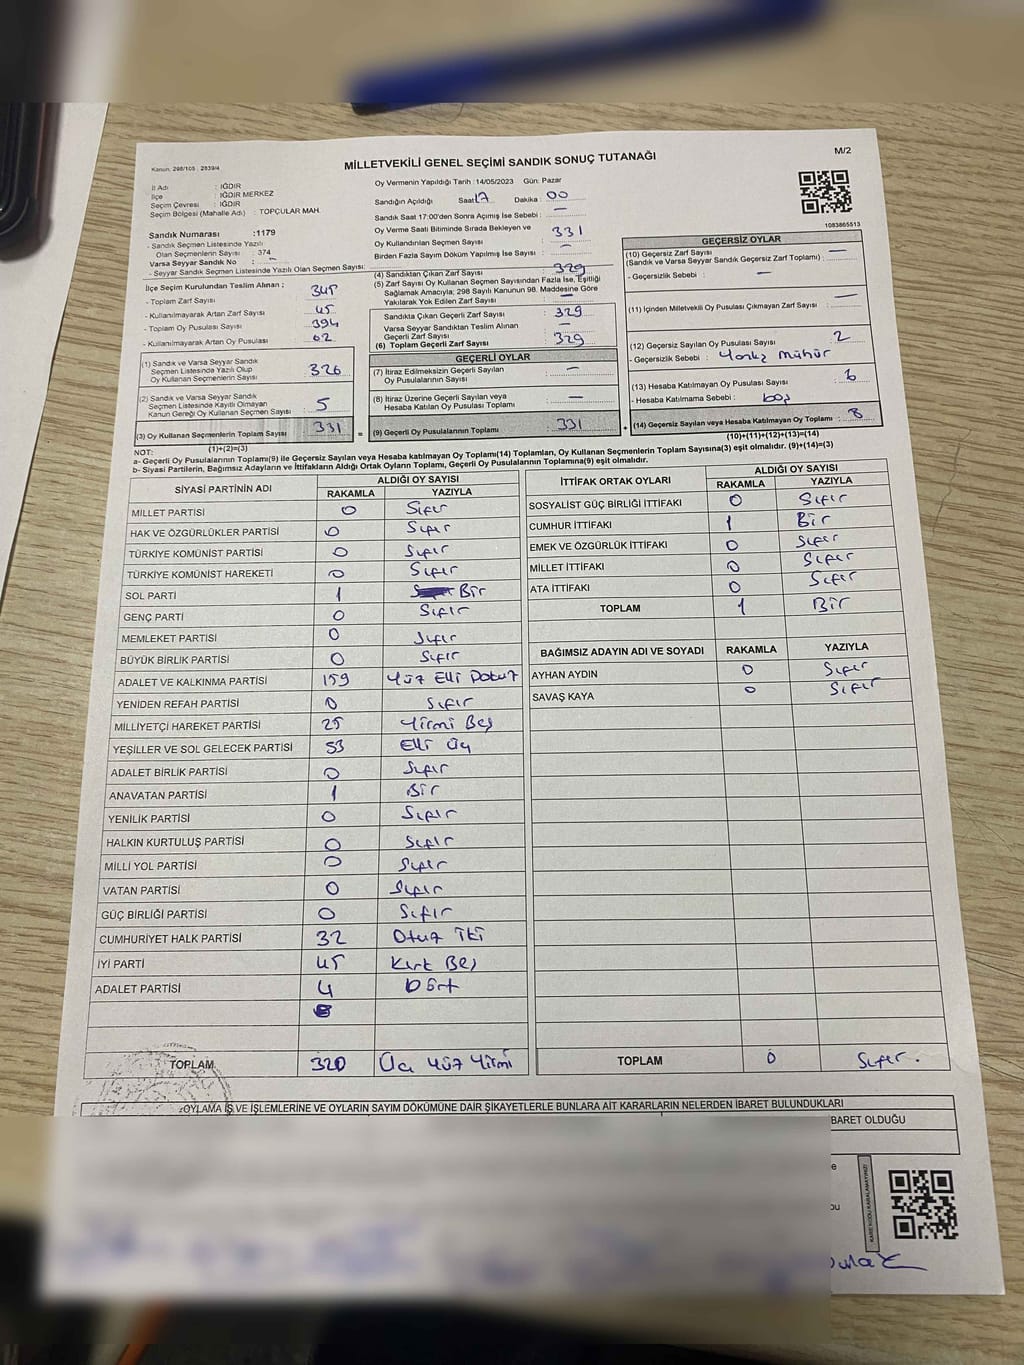 MİLLETVEKİLİ GENEL SEÇİMİ SANDIK SONUÇ TUTANAĞI
M/2
Kanun, 298/105 : 2839/4
İl Adı : IĞDIR
İlçe : IĞDIR MERKEZ
Seçim Çevresi : IĞDIR
Seçim Bölgesi (Mahalle Adı) : TOPÇULAR MAH.
Sandık Numarası :1179
- Sandık Seçmen Listesinde Yazılı
Olan Seçmenlerin Sayısı : 374
Varsa Seyyar Sandık No :
- Seyyar Sandık Seçmen Listesinde Yazılı Olan Seçmen Sayısı:
İlçe Seçim Kurulundan Teslim Alınan ;
- Toplam Zarf Sayısı : 345
- Kullanılmayarak Artan Zarf Sayısı : 45
- Toplam Oy Pusulası Sayısı : 394
- Kullanılmayarak Artan Oy Pusulası : 62
(1) Sandık ve Varsa Seyyar Sandık
Seçmen Listesinde Yazılı Olup
Oy Kullanan Seçmenlerin Sayısı : 326
(2) Sandık ve Varsa Seyyar Sandık
Seçmen Listesinde Kayıtlı Olmayan
Kanun Gereği Oy Kullanan Seçmen Sayısı : 5
(3) Oy Kullanan Seçmenlerin Toplam Sayısı 331
(1)+(2)=(3)
Oy Vermenin Yapıldığı Tarih :14/05/2023 Gün: Pazar
Sandığın Açıldığı Saat: 17 Dakika : 00
Sandık Saat 17:00'den Sonra Açımış İse Sebebi : —
Oy Verme Saati Bitiminde Sırada Bekleyen ve
Oy Kullandırılan Seçmen Sayısı : 331
Birden Fazla Sayım Döküm Yapılmış İse Sayısı : —
(4) Sandıktan Çıkan Zarf Sayısı : 329
(5) Zarf Sayısı Oy Kullanan Seçmen Sayısından Fazla İse, Eşitliği
Sağlamak Amacıyla; 298 Sayılı Kanunun 98. Maddesine Göre
Yakılarak Yok Edilen Zarf Sayısı : —
Sandıkta Çıkan Geçerli Zarf Sayısı : 329
Varsa Seyyar Sandıktan Teslim Alınan
Geçerli Zarf Sayısı : —
(6) Toplam Geçerli Zarf Sayısı : 329
GEÇERLİ OYLAR
(7) İtiraz Edilmeksizin Geçerli Sayılan
Oy Pusulalarının Sayısı : —
(8) İtiraz Üzerine Geçerli Sayılan ve
Hesaba Katılan Oy Pusulası Toplamı : —
= (9) Geçerli Oy Pusulalarının Toplamı : 331
1083865513
GEÇERSİZ OYLAR
(10) Geçersiz Zarf Sayısı : —
(Sandık ve Varsa Seyyar Sandık Geçersiz Zarf Toplamı) :
- Geçersizlik Sebebi : —
(11) İçinden Milletvekili Oy Pusulası Çıkmayan Zarf Sayısı : —
(12) Geçersiz Sayılan Oy Pusulası Sayısı : 2
- Geçersizlik Sebebi : mühür
(13) Hesaba Katılmayan Oy Pusulası Sayısı : 6
- Hesaba Katılmama Sebebi : boş
+ (14) Geçersiz Sayılan veya Hesaba Katılmayan Oy Toplamı : 8
(10)+(11)+(12)+(13)=(14)
NOT:
a- Geçerli Oy Pusulalarının Toplamı(9) ile Geçersiz Sayılan veya Hesaba katılmayan Oy Toplamı(14) Toplamları, Oy Kullanan Seçmenlerin Toplam Sayısına(3) eşit olmalıdır. (9)+(14)=(3)
b- Siyasi Partilerin, Bağımsız Adayların ve İttifakların Aldığı Ortak Oyların Toplamı, Geçerli Oy Pusulalarının Toplamına(9) eşit olmalıdır.
SİYASİ PARTİNİN ADI ALDIĞI OY SAYISI
RAKAMLA YAZIYLA
MİLLET PARTİSİ 0 Sıfır
HAK VE ÖZGÜRLÜKLER PARTİSİ 0 Sıfır
TÜRKİYE KOMÜNİST PARTİSİ 0 Sıfır
TÜRKİYE KOMÜNİST HAREKETİ 0 Sıfır
SOL PARTİ 1 Bir
GENÇ PARTİ 0 Sıfır
MEMLEKET PARTİSİ 0 Sıfır
BÜYÜK BİRLİK PARTİSİ 0 Sıfır
ADALET VE KALKINMA PARTİSİ 159 Yüz Elli Dokuz
YENİDEN REFAH PARTİSİ 0 Sıfır
MİLLİYETÇİ HAREKET PARTİSİ 25 Yirmi Beş
YEŞİLLER VE SOL GELECEK PARTİSİ 53 Elli Üç
ADALET BİRLİK PARTİSİ 0 Sıfır
ANAVATAN PARTİSİ 1 Bir
YENİLİK PARTİSİ 0 Sıfır
HALKIN KURTULUŞ PARTİSİ 0 Sıfır
MİLLİ YOL PARTİSİ 0 Sıfır
VATAN PARTİSİ 0 Sıfır
GÜÇ BİRLİĞİ PARTİSİ 0 Sıfır
CUMHURİYET HALK PARTİSİ 32 Otuz İki
İYİ PARTİ 45 Kırk Beş
ADALET PARTİSİ 4 Dört
TOPLAM 320 Üç Yüz Yirmi
İTTİFAK ORTAK OYLARI ALDIĞI OY SAYISI
RAKAMLA YAZIYLA
SOSYALİST GÜÇ BİRLİĞİ İTTİFAKI 0 Sıfır
CUMHUR İTTİFAKI 1 Bir
EMEK VE ÖZGÜRLÜK İTTİFAKI 0 Sıfır
MİLLET İTTİFAKI 0 Sıfır
ATA İTTİFAKI 0 Sıfır
TOPLAM 1 Bir
BAĞIMSIZ ADAYIN ADI VE SOYADI RAKAMLA YAZIYLA
AYHAN AYDIN 0 Sıfır
SAVAŞ KAYA 0 Sıfır
TOPLAM 0 Sıfır.
OYLAMA İŞ VE İŞLEMLERİNE VE OYLARIN SAYIM DÖKÜMÜNE DAİR ŞİKAYETLERLE BUNLARA AİT KARARLARIN NELERDEN İBARET BULUNDUKLARI
BARET OLDUĞU
KARE KODU KARALAMAYINIZ!